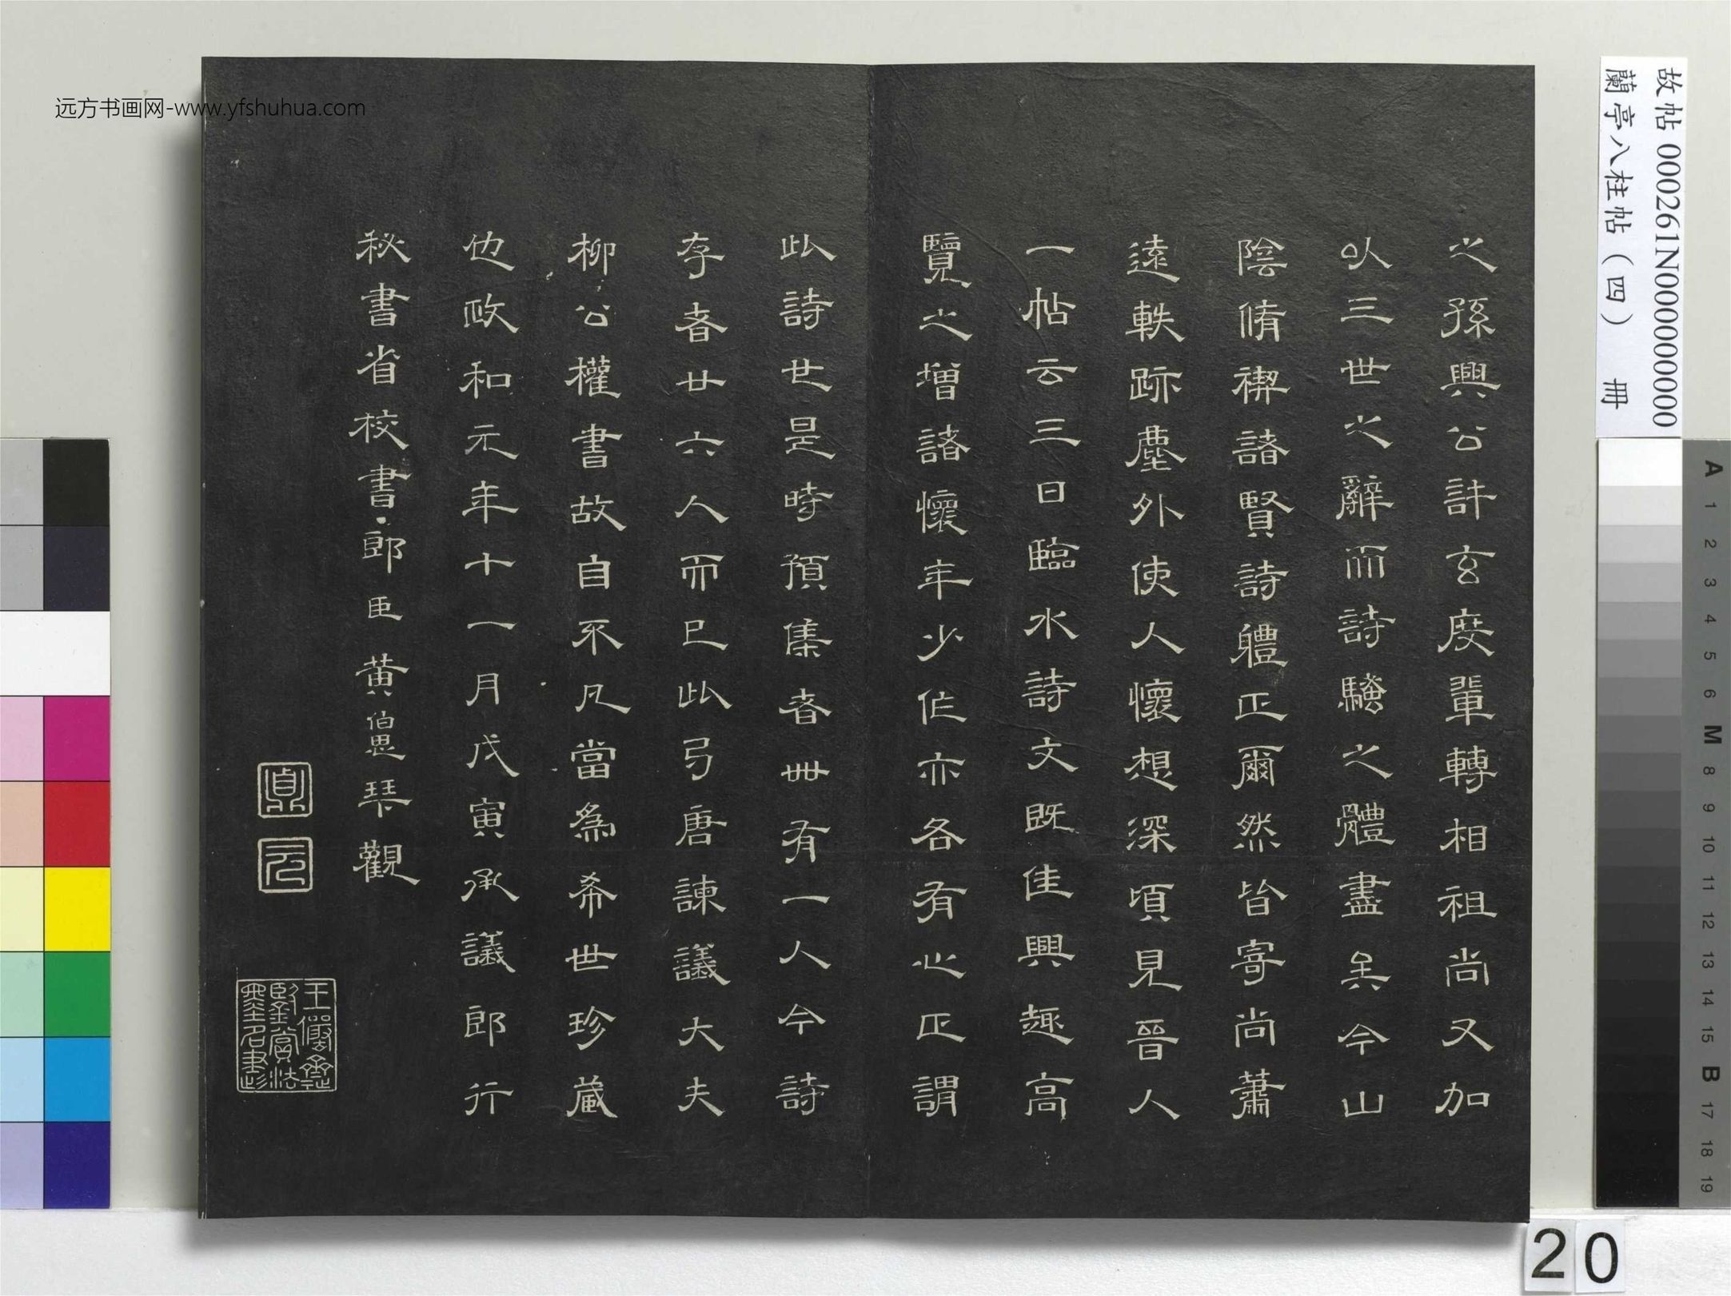 之孫興公許玄度輩轉相祖尚又加
以三世之辭而詩騷之體盡矣今山
陰脩禊諸賢詩軆正爾然皆寄尚蕭
遠軼跡塵外使人懷想深頃見晉人
一帖云三日臨水詩文既佳興趣高
覽之增諸懷年少作亦各有心正謂
此詩也是時預集者卌有一人今詩
存者廿六人而已此弓唐諫議大夫
柳公權書故自不凡當為希世珍藏
也政和元年十一月戊寅承議郎行
秘書省校書郎臣黃伯思琴觀
王儼齋
鑒賞法
墨名書
远方书画网-www.yfshuhua.com
故帖 000261N000000000
蘭亭八柱帖（四） 冊
A 1 2 3 4 5 6 M 8 9 10 11 12 13 14 15 B 17 18 19
20